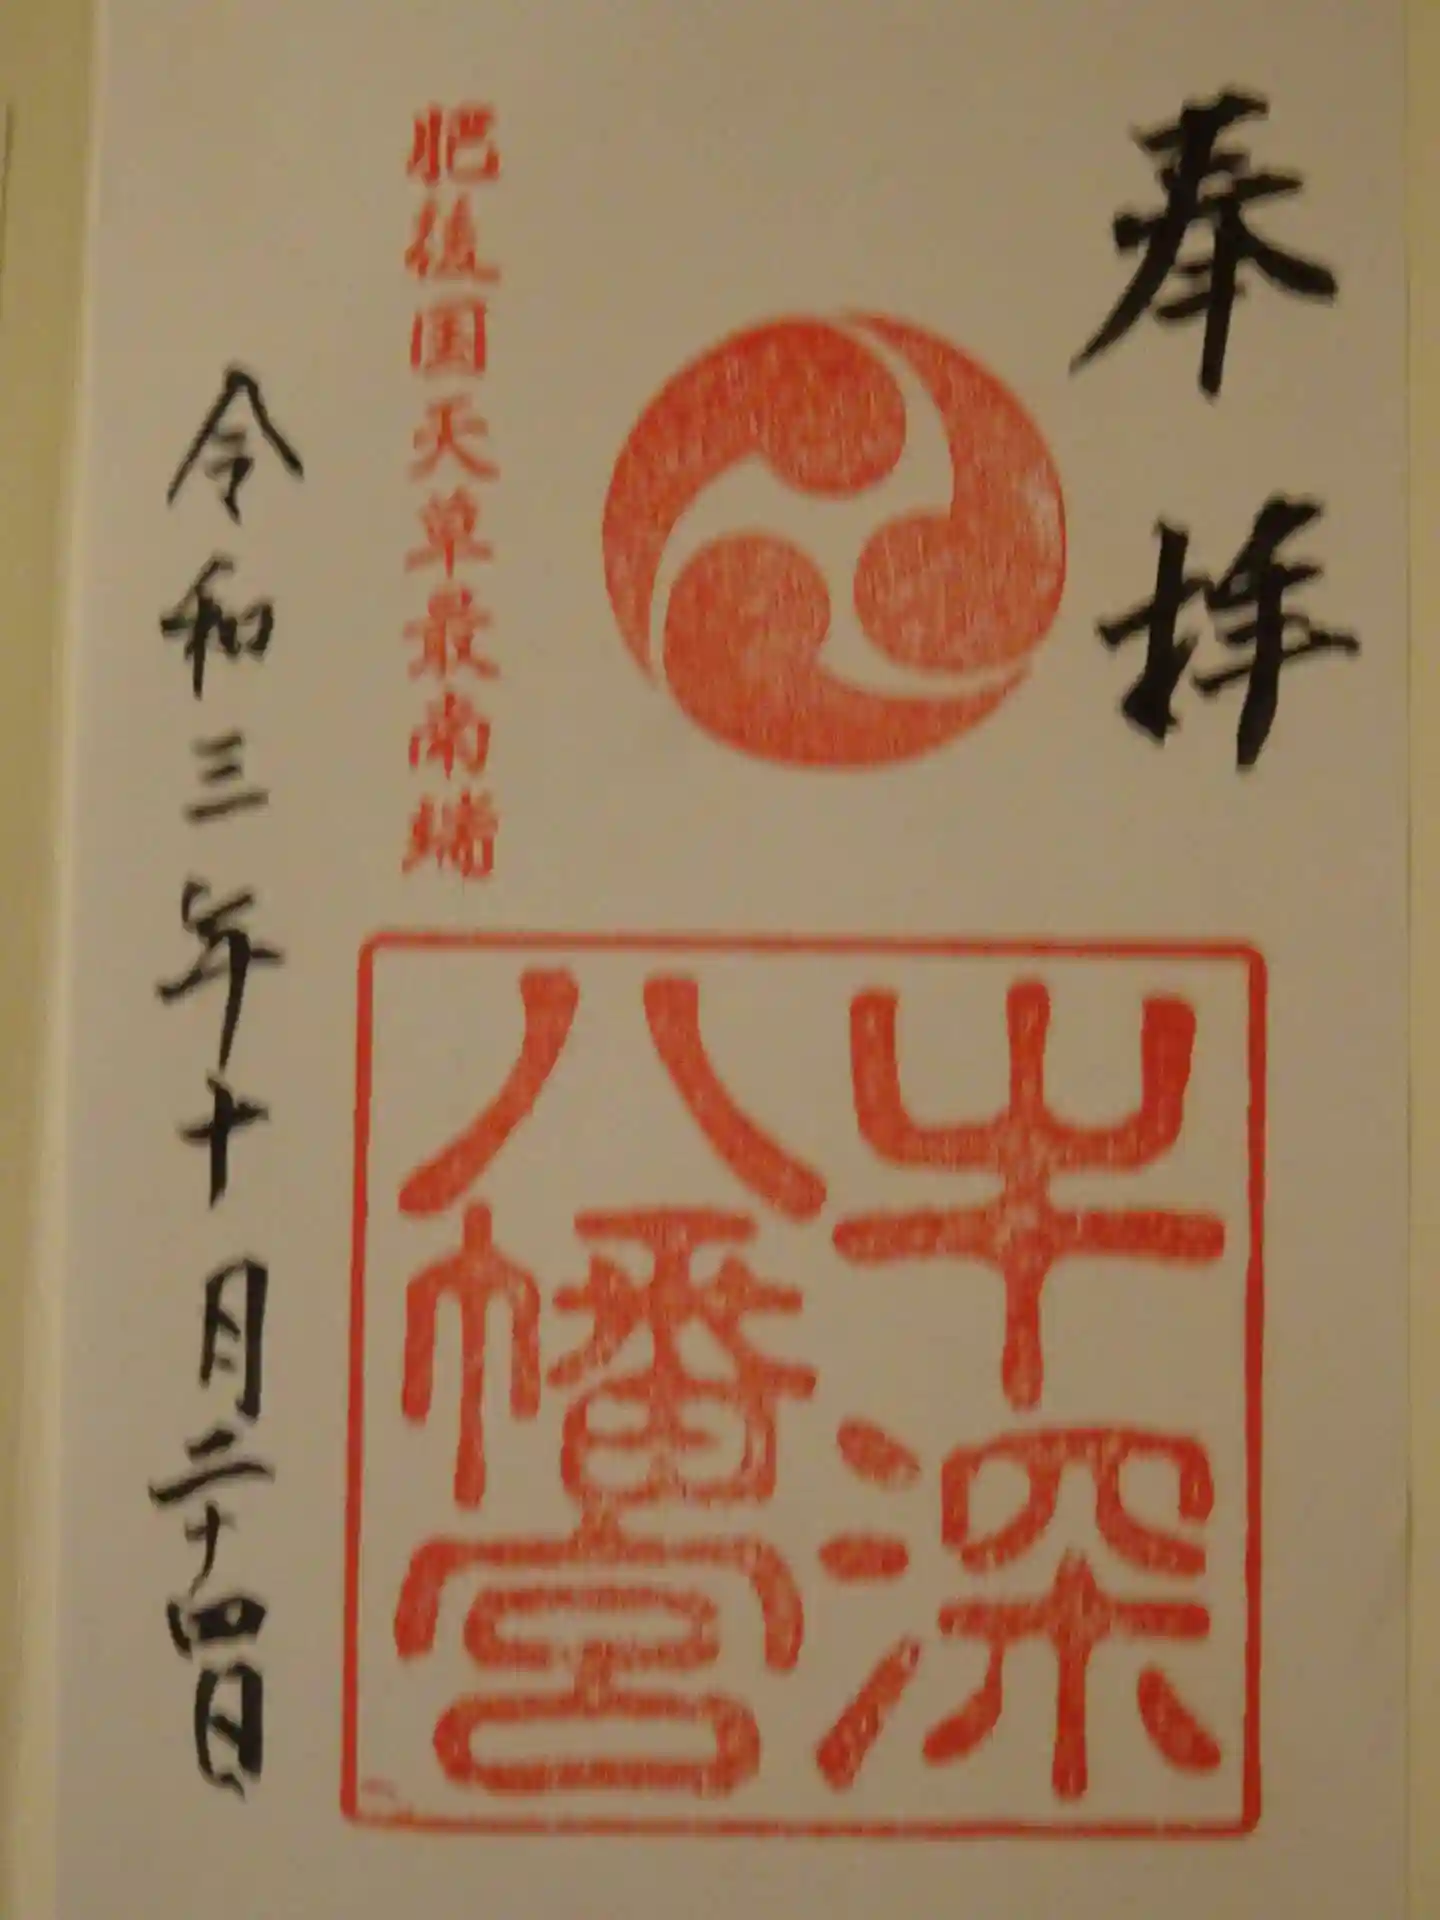 奉拝
牛深
八幡宮
肥後国天草最南端
令和三年十月二十四日